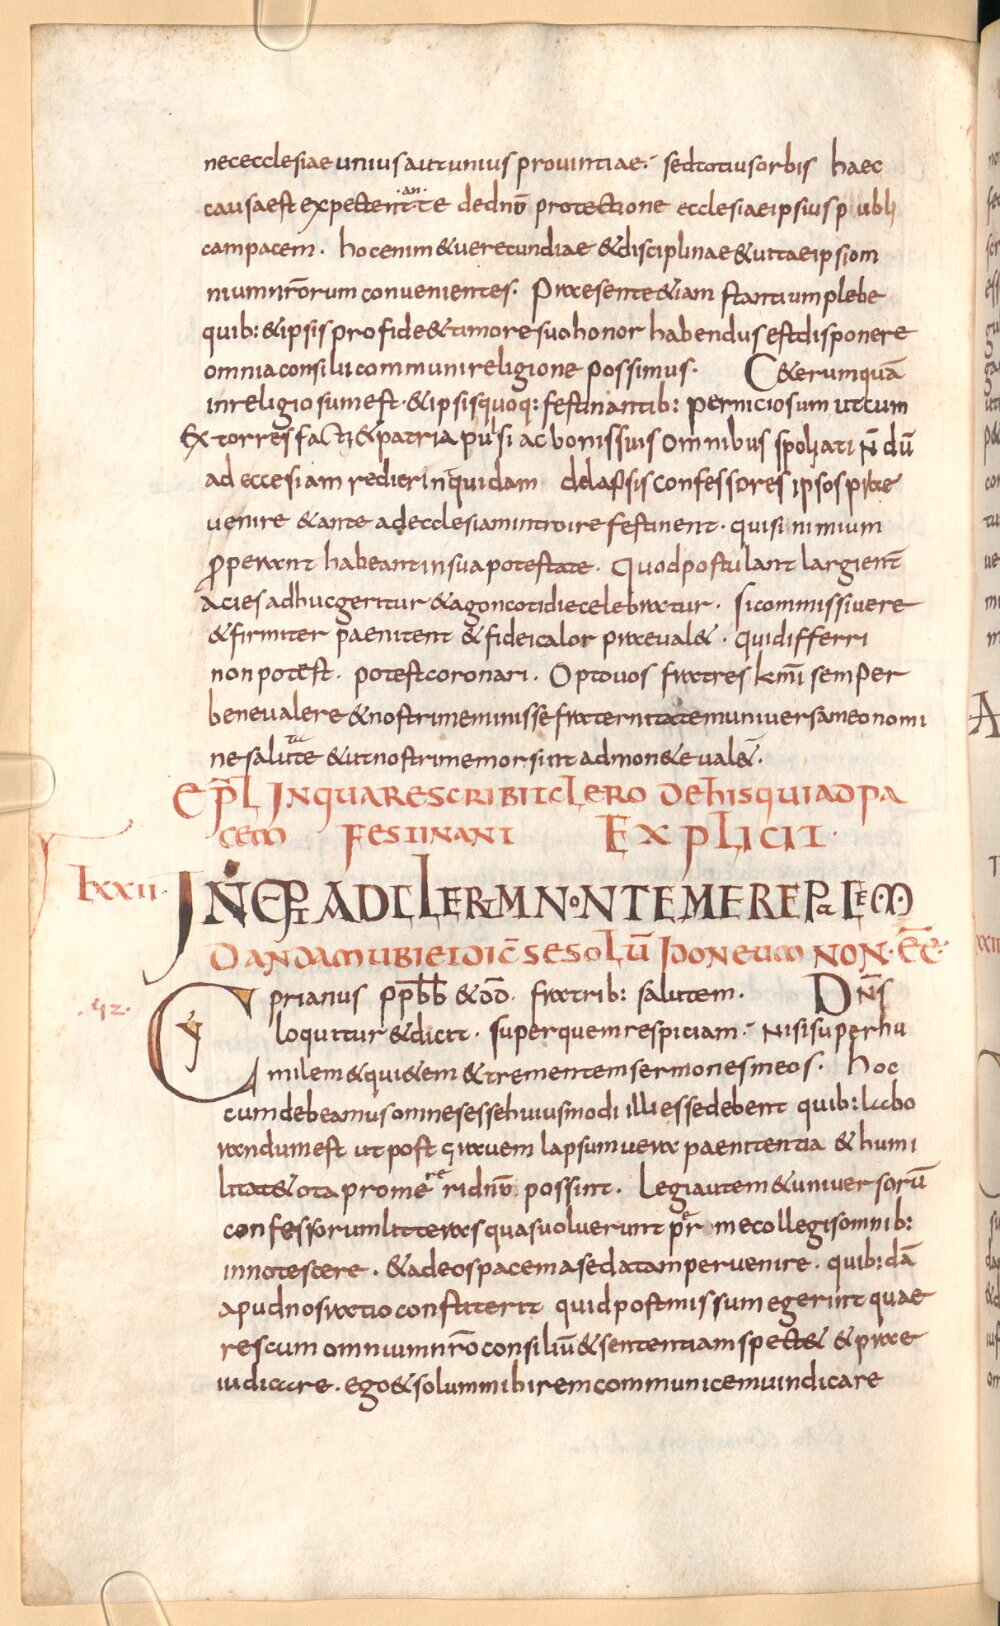 nec ecclesiae unius aut unius provintiae. sed totius orbis haec
causa est expectent ·an· te de dnō protectione ecclesiae ipsius publi
cam pacem. hoc enim & verecundiae & disciplinae & vitae ipsi om
nium nr̄orum convenientes. Praesente & iam stantium plebe
quib: & ipsis pro fide & timore suo honor habendus est disponere
omnia consilii communi religione possimus. C&erum quā
inreligiosum est · & ipsis quoq: festinantib: perniciosum ut cum
extorres facti & patria pulsi ac bonis suis omnibus spoliati n̄ dū
ad eccesiam redierint quidam de lapsis confessores ipsos prae
venire & ante ad ecclesiam introire festinent · qui si nimium
properant habeant in sua potestate. Quod postulant largient̄
acies adhuc geritur & agon cotidie celebratur. si commissi vere
& firmiter paenitent & fidei calor praeval&. qui differri
non potest. potest coronari. Opto vos fratres kmī semper
bene valere & nostri meminisse fraternitatem universam eo nomi
ne salute tu & ut nostri memor sint admon&e val&.
EPL̄ IN QUA RESCRIBIT CLERO DE HIS QUI AD PA
CEM FESTINANT EXPLICIT·
lxxii· IN̄C EP̄ AD CLERUM NON TEMERE PACEM
DANDAM UBI ET DIC̄ SE SOLŪ IDONEUM NON·EĒ·
·42· Cyprianus pp̄bb̄ & dō. fratrib: salutem. Dn̄s
loquitur & dicit. super quem respiciam. Nisi super hu
milem & qui&em & trementem sermones meos. Hoc
cum debeamus omnes esse huius modi illi esse debent quib: labo
randum est ut post gravem lapsum vera paenitentia & humi
litat& ota promere re ri dnō possint. Legi autem & universorū
confessorum litteras quas voluerunt per me collegis omnib:
innotescere. & ad eos pacem a se datam pervenire. quib: dā
apud nos ratio constiterit quid post missum egerint quae
res cum omnium nr̄o consiliū & sententiam spect& & prae
iudicare. ego & solum mihi rem communicem vindicare